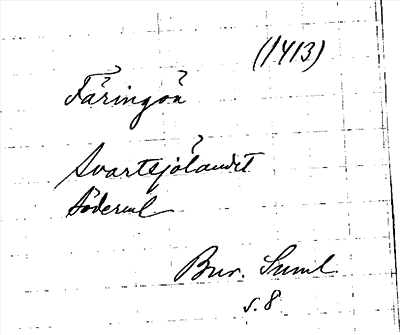 (1413)
Färingön
Svartsjölandet
Söderml
Bur. Suml.
s. 8